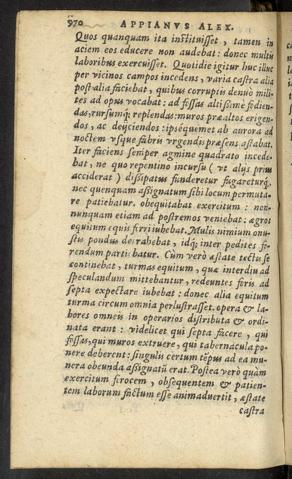 970 APPIANVS ALEX.
Quos quanquam ita instituisset, tamen in
aciem eos educere non audebat: donec multis
laboribus exercuisset. Quotidie igitur huc illuc
per vicinos campos incedens, varia castra alia
post alia faciebat, quibus corruptis denuò mili-
tes ad opus vocabat: ad fossas altißimè fodien-
das, rursumq́; replendas: muros præaltos erigen-
dos, ac deijciendos: ipséquemet ab aurora ad
noctem vsque fabris vrgendis præsens astabat.
Iter faciens semper agmine quadrato incede-
bat, ne quo repentino incursu (vt alijs prius
acciderat) dißipatus funderetur fugaretúrq́;
nec quenquam assignatum sibi locum permuta-
re patiebatur. obequitabat exercitum: non-
nunquam etiam ad postremos veniebat: ægros
equitum equis ferri iubebat. Mulis nimium onu-
stis pondus detrahebat, idq́; inter pedites fe-
rendum partiebatur. Cum verò æstate tectu se
continebat, turmas equitum, quæ interdiu ad
speculandum mittebantur, redeuntes foris ad
septa expectare iubebat: donec alia equitum
turma circum omnia perlustrasset. opera & la-
bores omneis in operarios distributa & ordi-
nata erant: videlicet qui septa facere, qui
fossas, qui muros extruere, qui tabernacula po-
nere deberent: singulis certum tẽpus ad ea mu-
nera obeunda assignatũ erat. Postea verò quàm
exercitum firocem, obsequentem & patien-
tem laborum factum esse animaduertit, æstate
castra